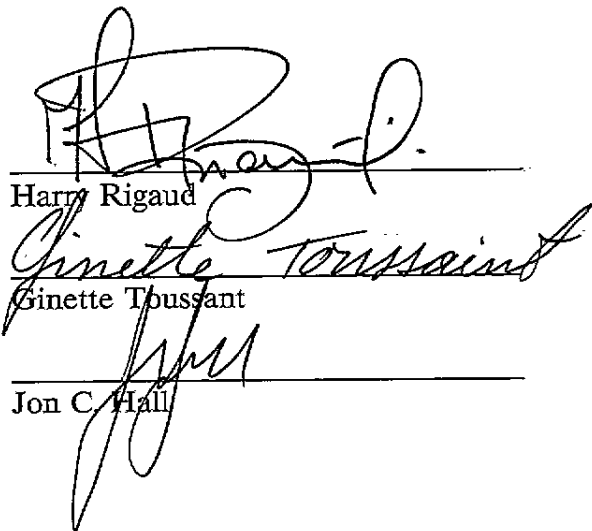 Harry Rigaud
Ginette Toussaint
Ginette Toussant
Jon C. Hall